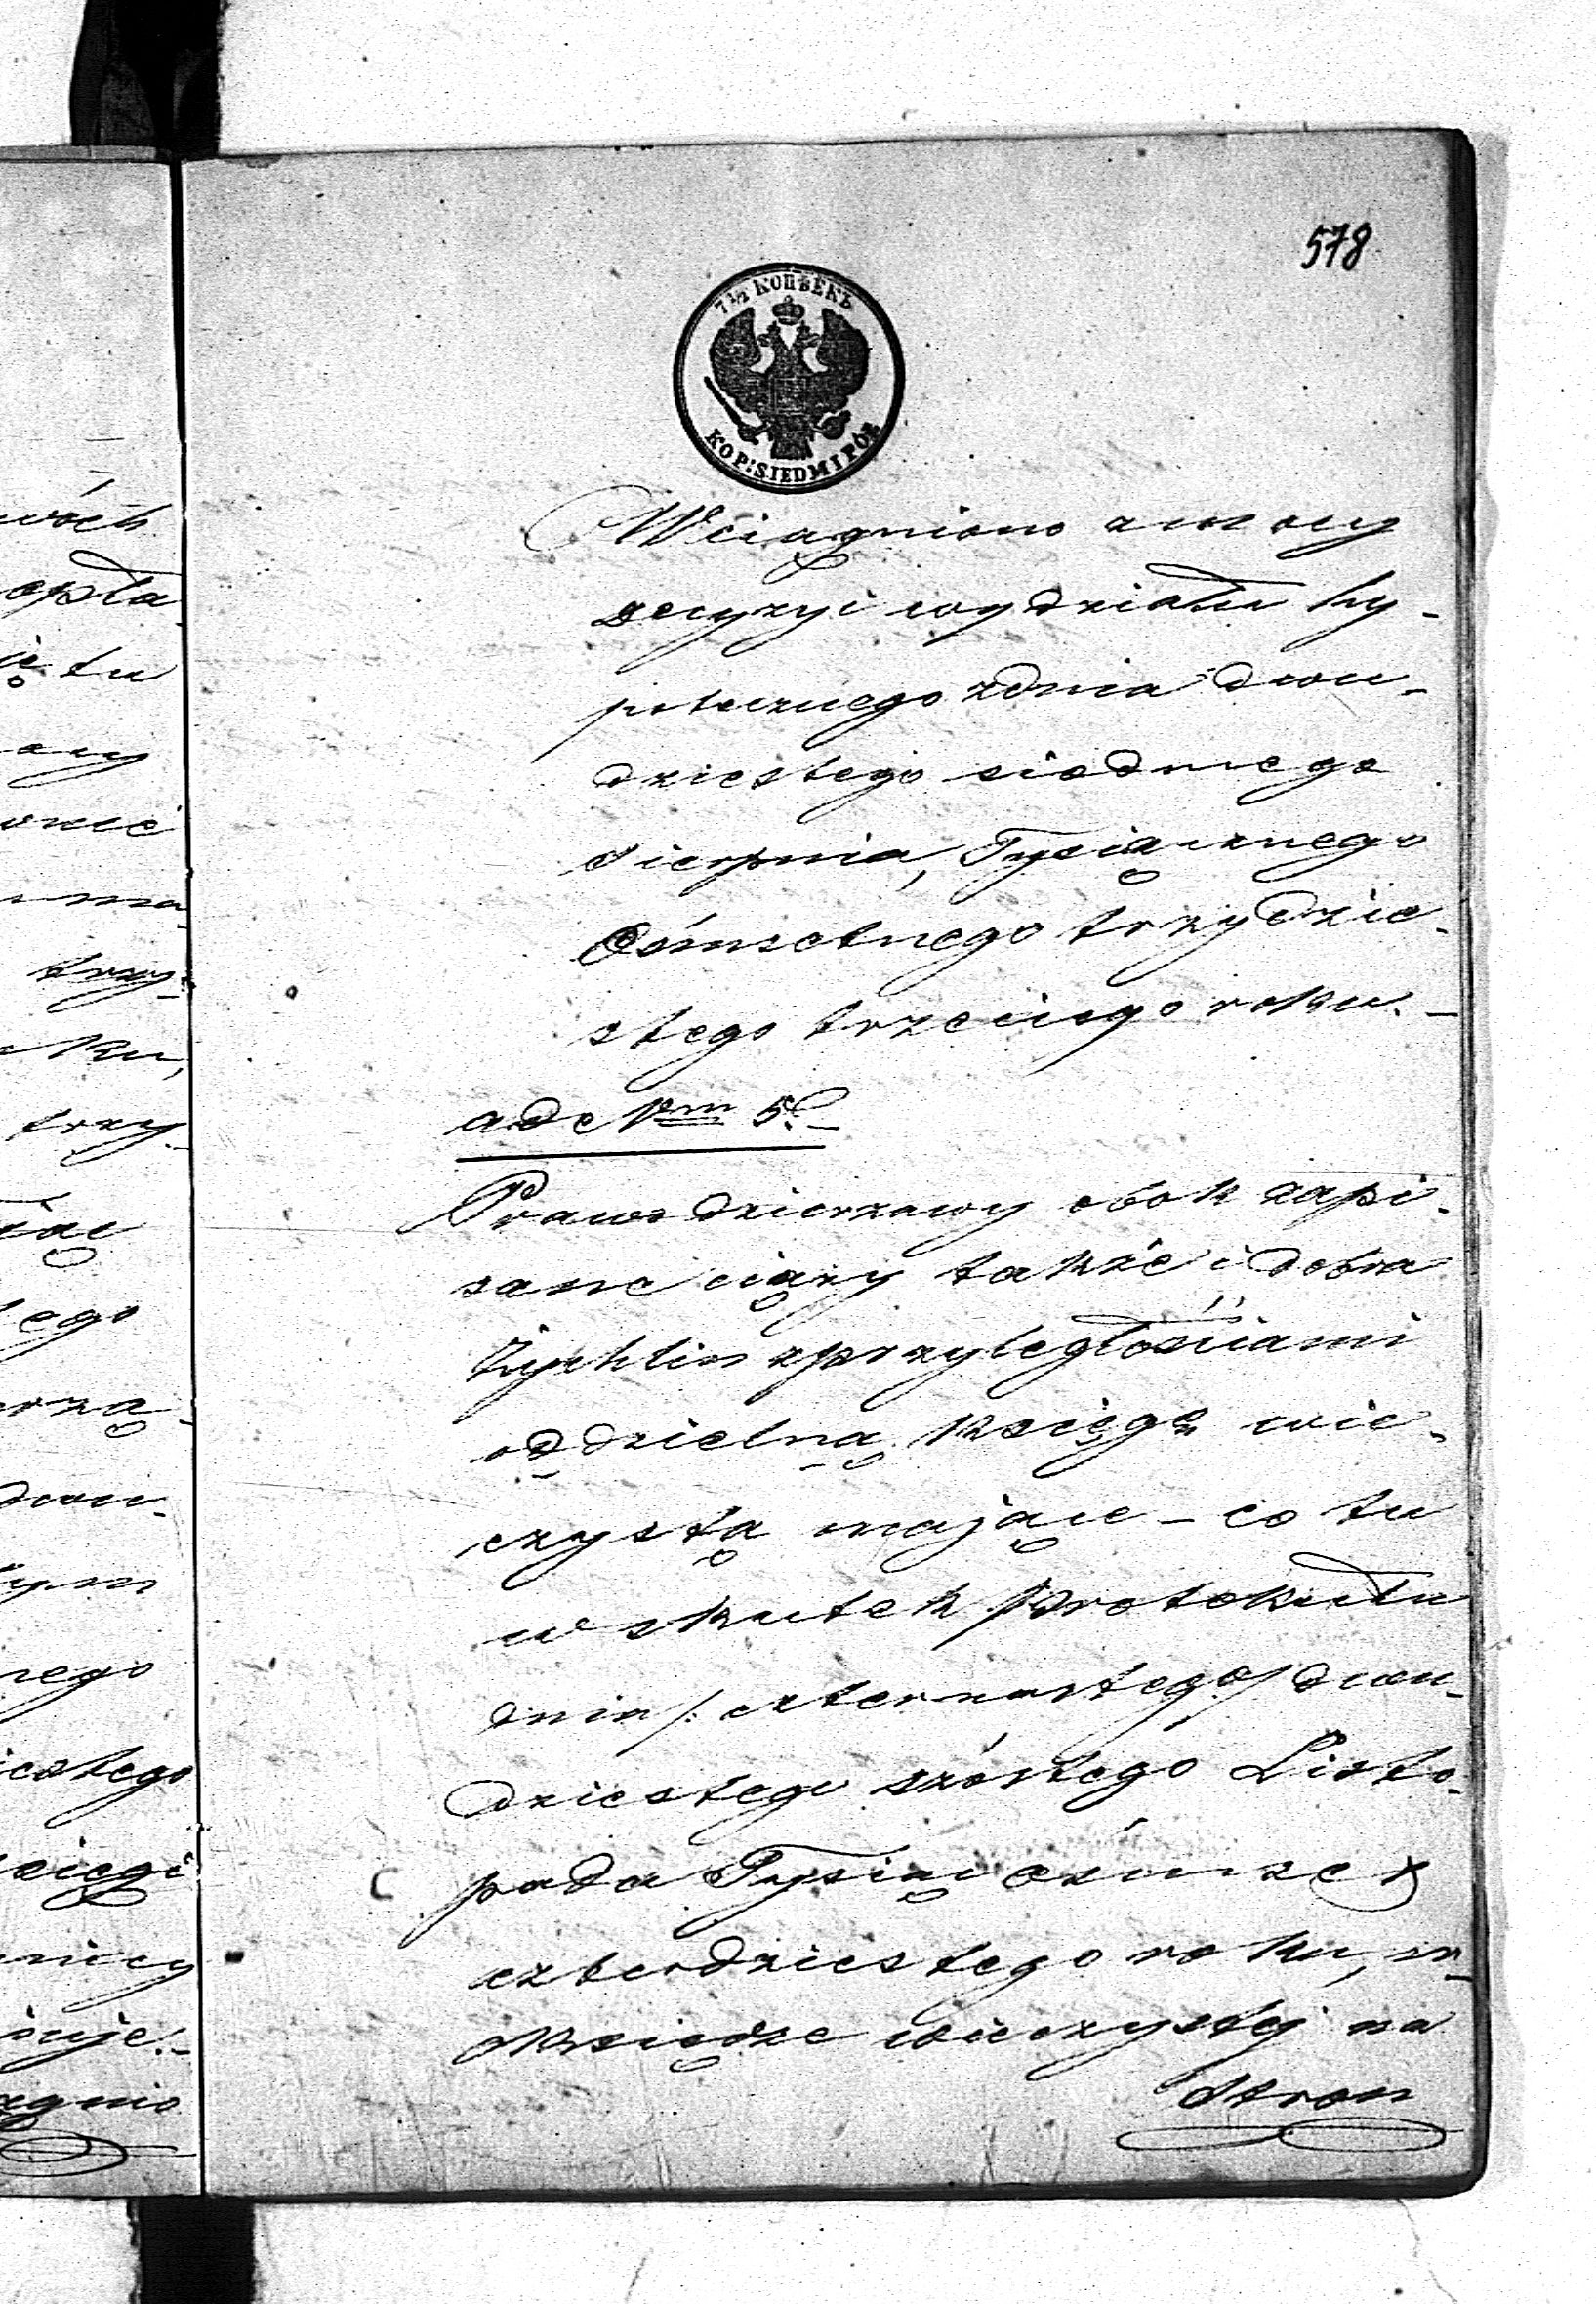 578
7½ КОПѢЕКЪ
KOP: SIEDM I PÓŁ
Wciągniono z mocy
decyzyi wydziału hy-
potecznego z dnia dwu-
dziestego siódmego
Sierpnia, Tysiącznego
Ośmsetnego trzydzie-
stego trzeciego roku.-
ad Nm 5.-
Prawo dzierzawy obok zapi-
sane ciąży także i dobra
Żychlin z przyległościami
oddzielną Księgę wie-
czystą mające - co tu
w skutek Protokułu
dnia /: czternastego / dwu-
dziestego szóstego Listo-
pada Tysiąc ośmset
czterdziestego roku, w-
Księdze wieczystej na
Stron
wóch
opła
tu
trzy-
ku,
trzy-
ego
dwu-
nego
iestego
sięgi
uje.-
ągnio